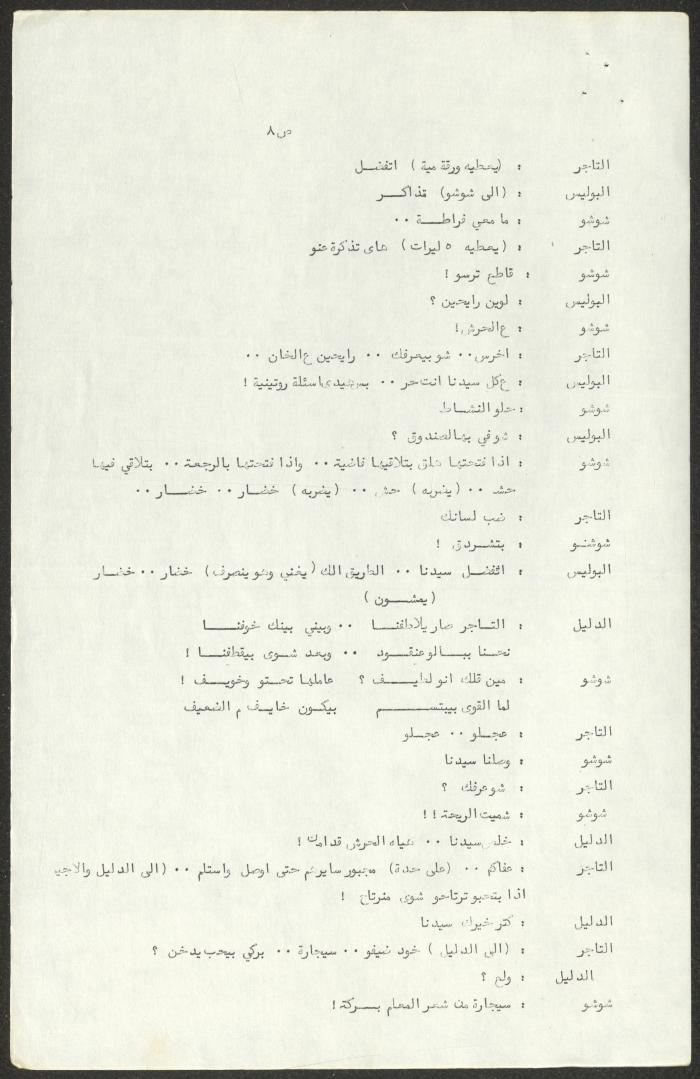 ص ٨
التاجر : (يعطيه ورقة مية) اتفضل
البوليس : (الى شوشو) تذاكر
شوشو : ما معي فراطة ..
التاجر : (يعطيه ٥ ليرات) هاى تذكرة عنو
شوشو : قاطع ترسو !
البوليس : لوين رايحين ؟
شوشو : ع الحرش !
التاجر : اخرس .. شو بيعرفك .. رايحين ع الخان ..
البوليس : ع كل سيدنا انت حر .. بس هيدى اسئلة روتينية !
شوشو : حلو النشاط
البوليس : شو في بهالصندوق ؟
شوشو : اذا فتحتها هلق بتلاقيها فاضية .. واذا فتحتها بالرجعة .. بتلاقي فيها
حشد .. (يضربه) حش .. (يضربه) خضار .. خضار ..
التاجر : ضب لسانك
شوشو : بتشردق !
البوليس : اتفضل سيدنا .. الطريق الك (يغني وهو ينصرف) خضار .. خضار
(يمشون)
الدليل : التاجر صار يلاطفنا .. وبيني بينك خوفنا
نحنا ببالو عنقود .. وبعد شوى بيقطفنا !
شوشو : مين قلك انو لطيف ؟ عاملها تحتو وخويف !
لما القوى بيبتسم بيكون خايف م الضعيف
التاجر : عجلو .. عجلو
شوشو : وصلنا سيدنا
التاجر : شو عرفك ؟
شوشو : شميت الريحة !!
الدليل : خلص سيدنا .. هياه الحرش قدامك !
التاجر : عفاكم .. (على حدة) مجبور سايرهم حتى اوصل واستلم .. (الى الدليل والاجير
اذا بتحبو ترتاحو شوى منرتاح !
الدليل : كتر خيرك سيدنا
التاجر : (الى الدليل) خود نسيفو .. سيجارة .. بركي بيحب يدخن ؟
الدليل : ولع ؟
شوشو : سيجارة من شعر المعلم بركة !